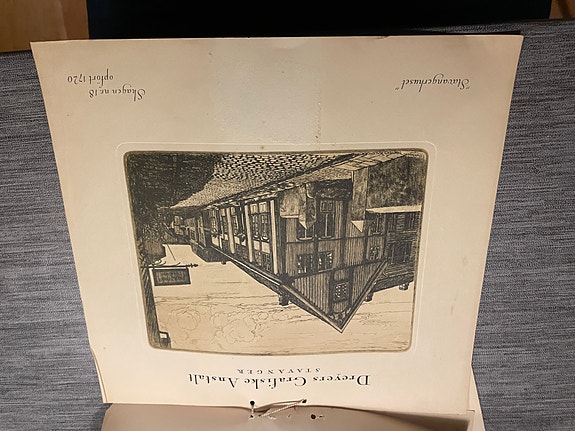 Dreyers Grafiske Anstalt
STAVANGER
"Stavangerhuset"
Skagen nr. 18
opført 1720